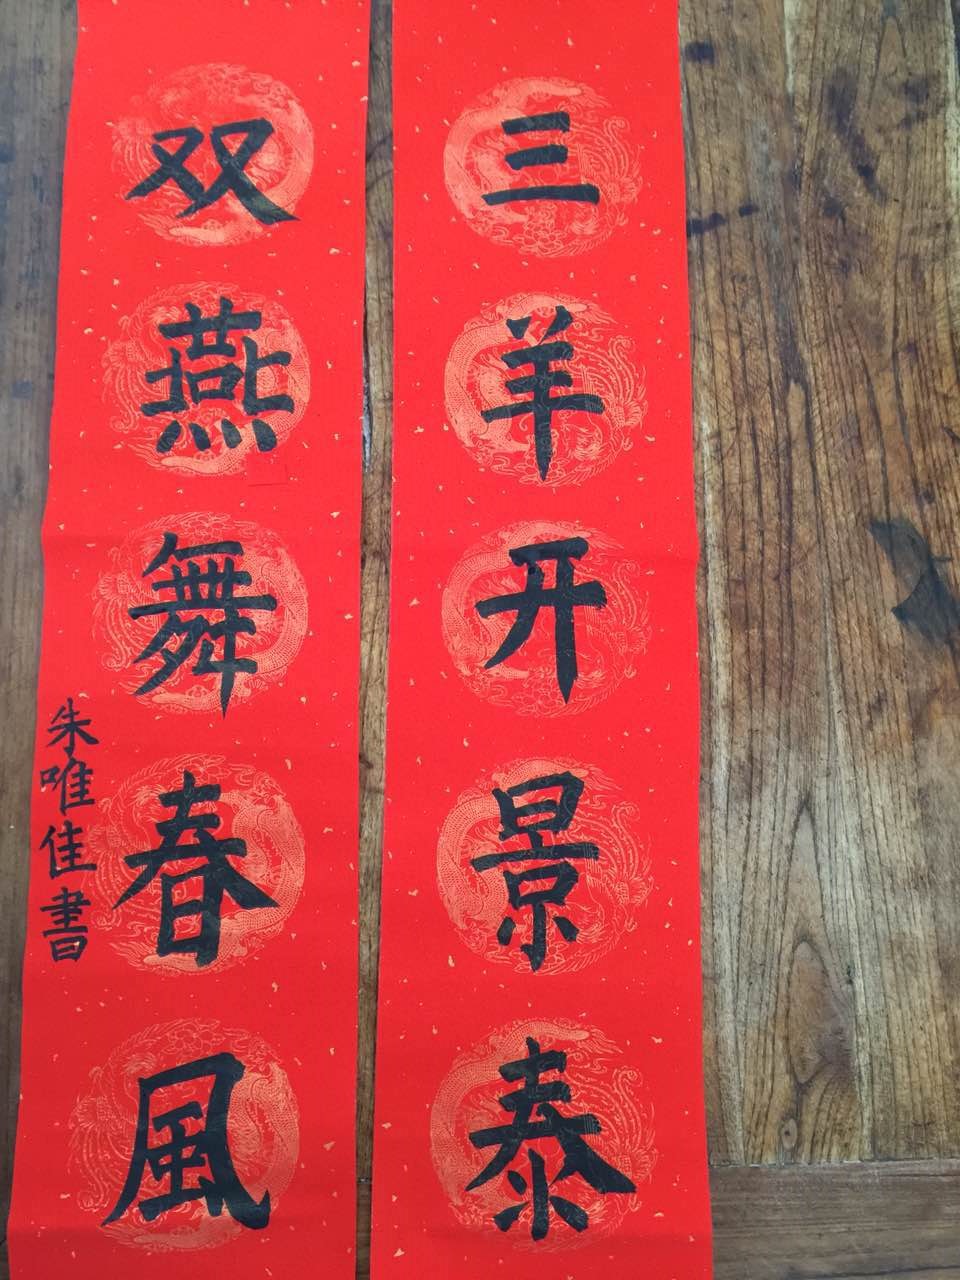 三羊开景泰
双燕舞春風
朱唯佳書